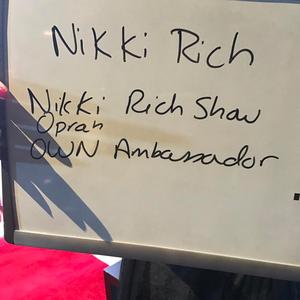 Nikki Rich
Nikki Rich Show
Oprah
OWN Ambassador